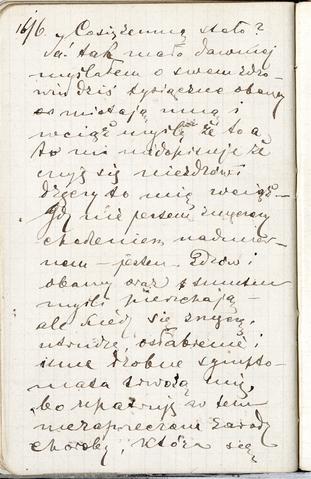 16/6. Cóż się ze mną stało?
Ja tak mało dawniej
myślałem o swem zdro-
wiu dziś tysiączne obawy
miotają mną i
wciąż myślę że to a
to nie niedopisuje że
czuję się niezdrów
Dręczy to mię wciąż –
Gdy nie jestem zmęczony
chodzeniem nadmier-
nem – jestem zdrów i
obawy oraz smutne
myśli pierzchają –
ale kiedy się zmęczę,
utrudzę, osłabienie i
inne drobne sympto-
mata trwożą mię,
bo upatruję w tem
niezaprzeczone zarody
choroby, która się